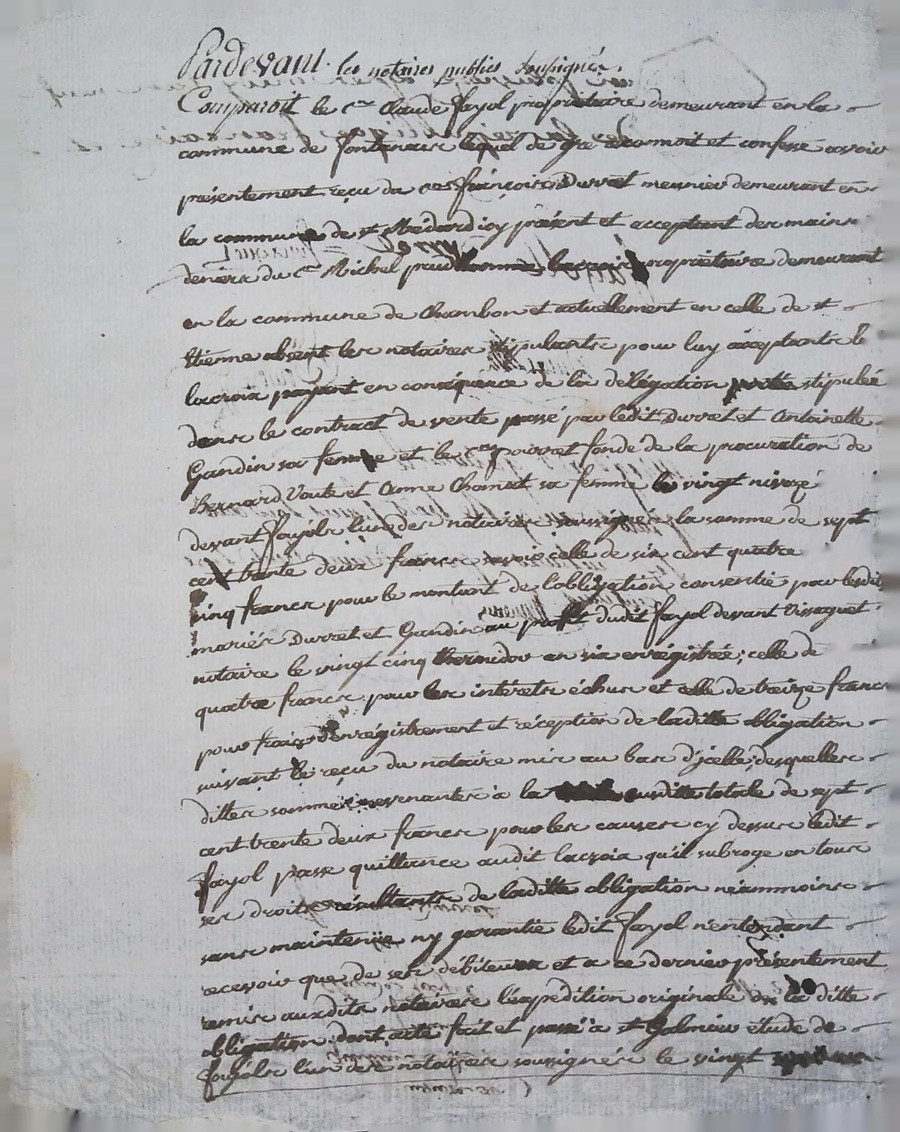 Pardevant les notaires publics soussignés
Comparoit le Cen Claude fayol propriétaire demeurant en la
commune de fontanaise lequel de gré reconnoit et confesse avoir
présentement reçu du François Durret meunier demeurant en
la commune de st Médard icy présent et acceptant des mains
deniers du Cen Michel propriétaire demeurant
en la commune de Chambon et actuellement en celle de st
Etienne absent les notaires stipulants pour luy acceptants le
lacroix payant en conséquence de la délégation stipulée
dans le contract de vente passé par ledit Durret et Antoinette
Gandin sa femme et le Cen poirret fondé de la procuration de
Bernard Voute et Anne Chomat sa femme le vingt nivose
devant foujols l'un des notaires soussignés la somme de sept
cent trente deux francs savoir celle de six cent quatre
cinq francs pour le montant de l'obligation consentie par lesdits
mariés Durret et Gandin au profit dudit fayol devant Vissaguet
notaire le vingt cinq thermidor an six enrégistrée; celle de
quatre francs pour les intérêts échus et celle de treize francs
pour frais d'enrégistrement et réception de laditte obligation
suivant le reçu du notaire mis au bas d'jcelle; desquelles
dittes sommes revenantes à la susditte totale de sept
cent trente deux francs pour les causes cy dessus ledit
fayol passe quittance audit lacroix qu'il subroge en tous
ses droits résultants de laditte obligation néammoins
sans maintenüe ny garantie ledit fayol n'entendant
recevoir que de ses débiteurs et a ce dernier présentement
remis auxdits notaires l'expédition originale de la ditte
obligation dont acte fait et passé à st Galmier étude de
foujols l'un des notaires soussignés le vingt